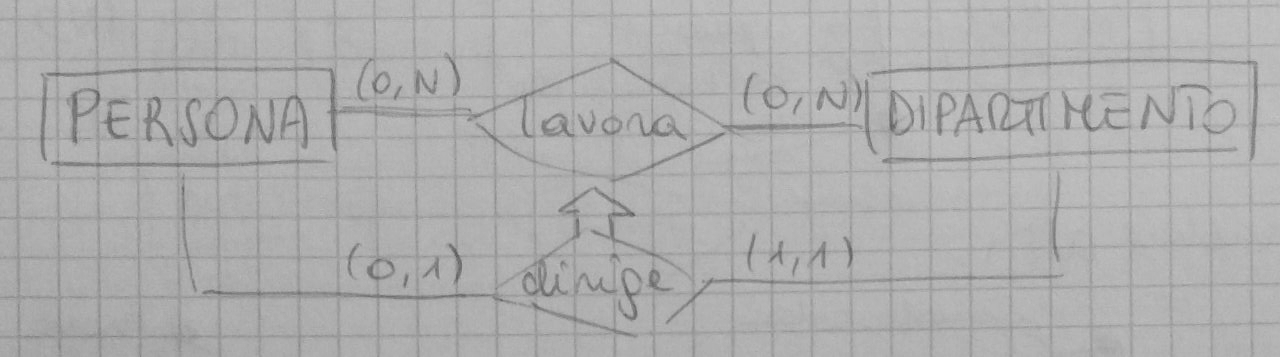 PERSONA (0,N) lavora (0,N) DIPARTIMENTO
(0,1) dirige (1,1)